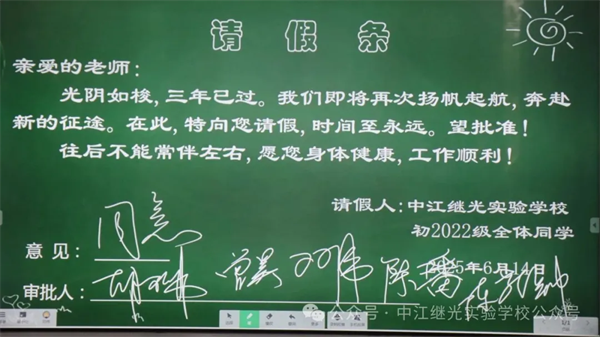 请 假 条
亲爱的老师：
光阴如梭，三年已过。我们即将再次扬帆起航，奔赴
新的征途。在此，特向您请假，时间至永远。望批准！
往后不能常伴左右，愿您身体健康，工作顺利！
请假人：中江继光实验学校
初2022级全体同学
意见：同意
2025年6月14日
审批人：
公众号·中江继光实验学校公众号